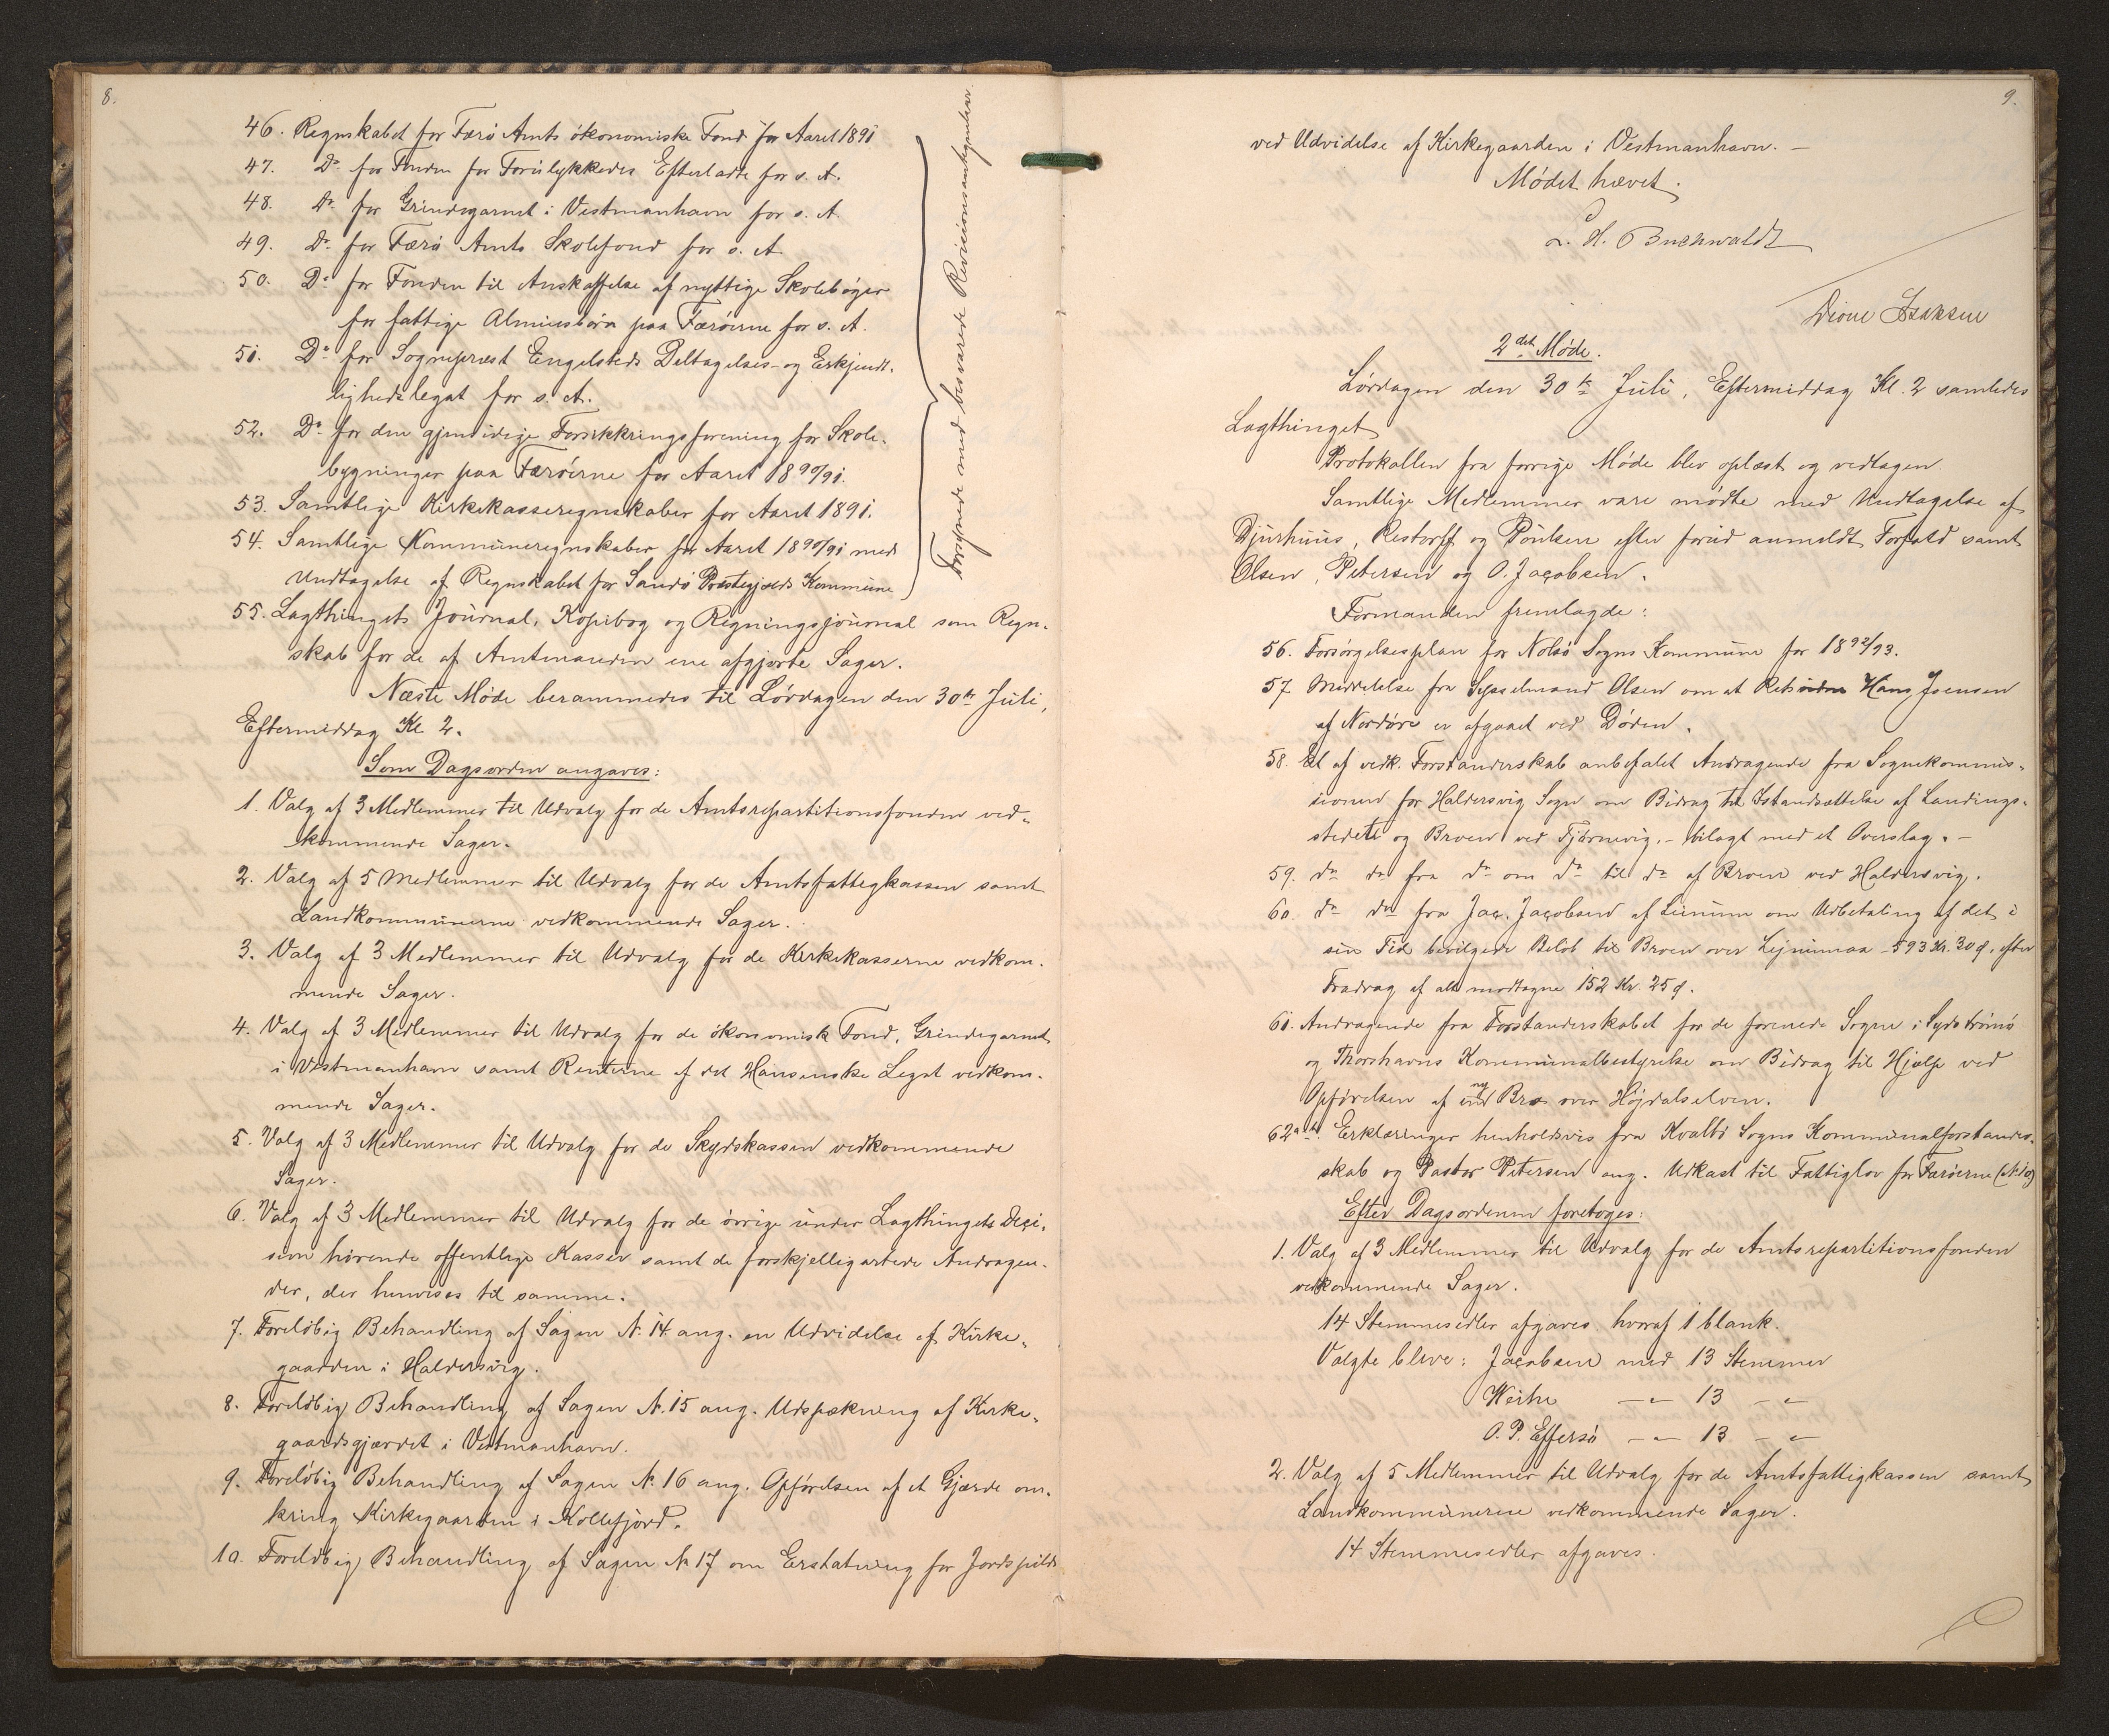 8.
46. Regnskabet for Færø Amts økonomiske Fond for Aaret 1891
47. Do for Fonden for Forulykkedes Efterladte for s. A.
48. Do for Grindegarnet i Vestmanhavn for s. A.
49. Do for Færø Amts Skolefond for s. A
50. Do for Fonden til Anskaffelse af nyttige Skolebøger
for fattige Almuesbørn paa Færøerne for s. A.
51. Do for Sognepræst Engelsteds Deltagelses- og Erkjendt-
lighedslegat for s. A.
52. Do for den gjensidige Forsikkringsforening for Skole-
bygninger paa Færøerne for Aaret 1890/91.
53. Samtlige Kirkekasseregnskaber for Aaret 1891.
54. Samtlige Kommuneregnskaber for Aaret 1890/91 med
Undtagelse af Regnskabet for Sandø Præstegjælds Kommune
Forsynede med besvarede Revisionsantegnelser
55. Lagthingets Journal, Kopibog og Regningsjournal som Regn-
skab for de af Amtmanden ene afgjorte Sager.
Næste Møde berammedes til Lørdagen den 30te Juli,
Eftermiddag Kl. 2.
Som Dagsorden angaves:
1. Valg af 3 Medlemmer til Udvalg for de Amtsrepartitionsfonden ved-
kommende Sager.
2. Valg af 5 Medlemmer til Udvalg for de Amtsfattigkassen samt
Landkommunerne vedkommende Sager.
3. Valg af 3 Medlemmer til Udvalg for de Kirkekasserne vedkom-
mende Sager.
4. Valg af 3 Medlemmer til Udvalg for de økonomisk Fond, Grindegarnet
i Vestmanhavn samt Renterne af det Hansenske Legat vedkom-
mende Sager.
5. Valg af 3 Medlemmer til Udvalg for de Skydskassen vedkommende
Sager.
6. Valg af 3 Medlemmer til Udvalg for de øvrige under Lagthingets Deci-
sion hørende offentlige Kasser samt de forskjelligartede Andragen-
der, der henvises til samme.
7. Foreløbig Behandling af Sagen No 14 ang. en Udvidelse af Kirke-
gaarden i Haldersvig.
8. Foreløbig Behandling af Sagen No 15 ang. Udspækning af Kirke-
gaardsgjærdet i Vestmanhavn.
9. Foreløbig Behandling af Sagen No 16 ang. Opførelsen af et Gjærde om-
kring Kirkegaarden i Kollefjord.
10. Foreløbig Behandling af Sagen No 17 om Erstatning for Jordspilde
9.
ved Udvidelse af Kirkegaarden i Vestmanhavn. -
Mødet hævet.
L. H. Buchwaldt
Dione Isaksen
2det Møde.
Lørdagen den 30te Juli, Eftermiddag Kl. 2 samledes
Lagthinget
Protokollen fra forrige Møde blev oplæst og vedtagen.
Samtlige Medlemmer vare mødte med Undtagelse af
Djurhuus, Restorff og Poulsen efter forud anmeldt Forfald samt
Olsen, Petersen og O. Jacobsen.
Formanden fremlagde:
56. Forsørgelsesplan for Nolsø Sogns Kommune for 1892/93.
57. Meddelelse fra Sysselmand Olsen om at Hans Joensen
af Nordøre er afgaaet ved Døden.
58. Et af vedk. Forstanderskab anbefalet Andragende fra Sognekommis-
sionen for Haldersvig Sogn om Bidrag til Istandsættelse af Landings-
stedet og Broen ved Tjørnevig. - bilagt med et Overslag. -
59. do do fra do om do til do af Broen ved Haldersvig.
60. do do fra Jac. Jacobsen af Leinum om Udbetaling af det i
sin Tid bevilgede Beløb til Broen over Lejnumaa - 593 Kr. 30 Ø. efter
Fradrag af alt modtagne 152 Kr. 25 Ø.
61. Andragende fra Forstanderskabet for de forenede Sogne i Sydstrømø
og Thorshavns Kommunalbestyrelse om Bidrag til Hjælp ved
Opførelsen af en ny Bro over Højdalselven.
62 a-b. Erklæringer henholdsvis fra Kvalbø Sogns Kommunalforstander-
skab og Pastor Petersen ang. Udkast til Fattiglov for Færøerne (No 10)
Efter Dagsordenen foretoges:
1. Valg af 3 Medlemmer til Udvalg for de Amtsrepartitionsfonden
vedkommende Sager.
14 Stemmesedler afgaves hvoraf 1 blank.
Valgte bleve: Jacobsen med 13 Stemmer
Weihe - " - 13 - " -
O. P. Effersø - " - 13 - " -
2. Valg af 5 Medlemmer til Udvalg for de Amtsfattigkassen samt
Landkommunerne vedkommende Sager.
14 Stemmesedler afgaves.